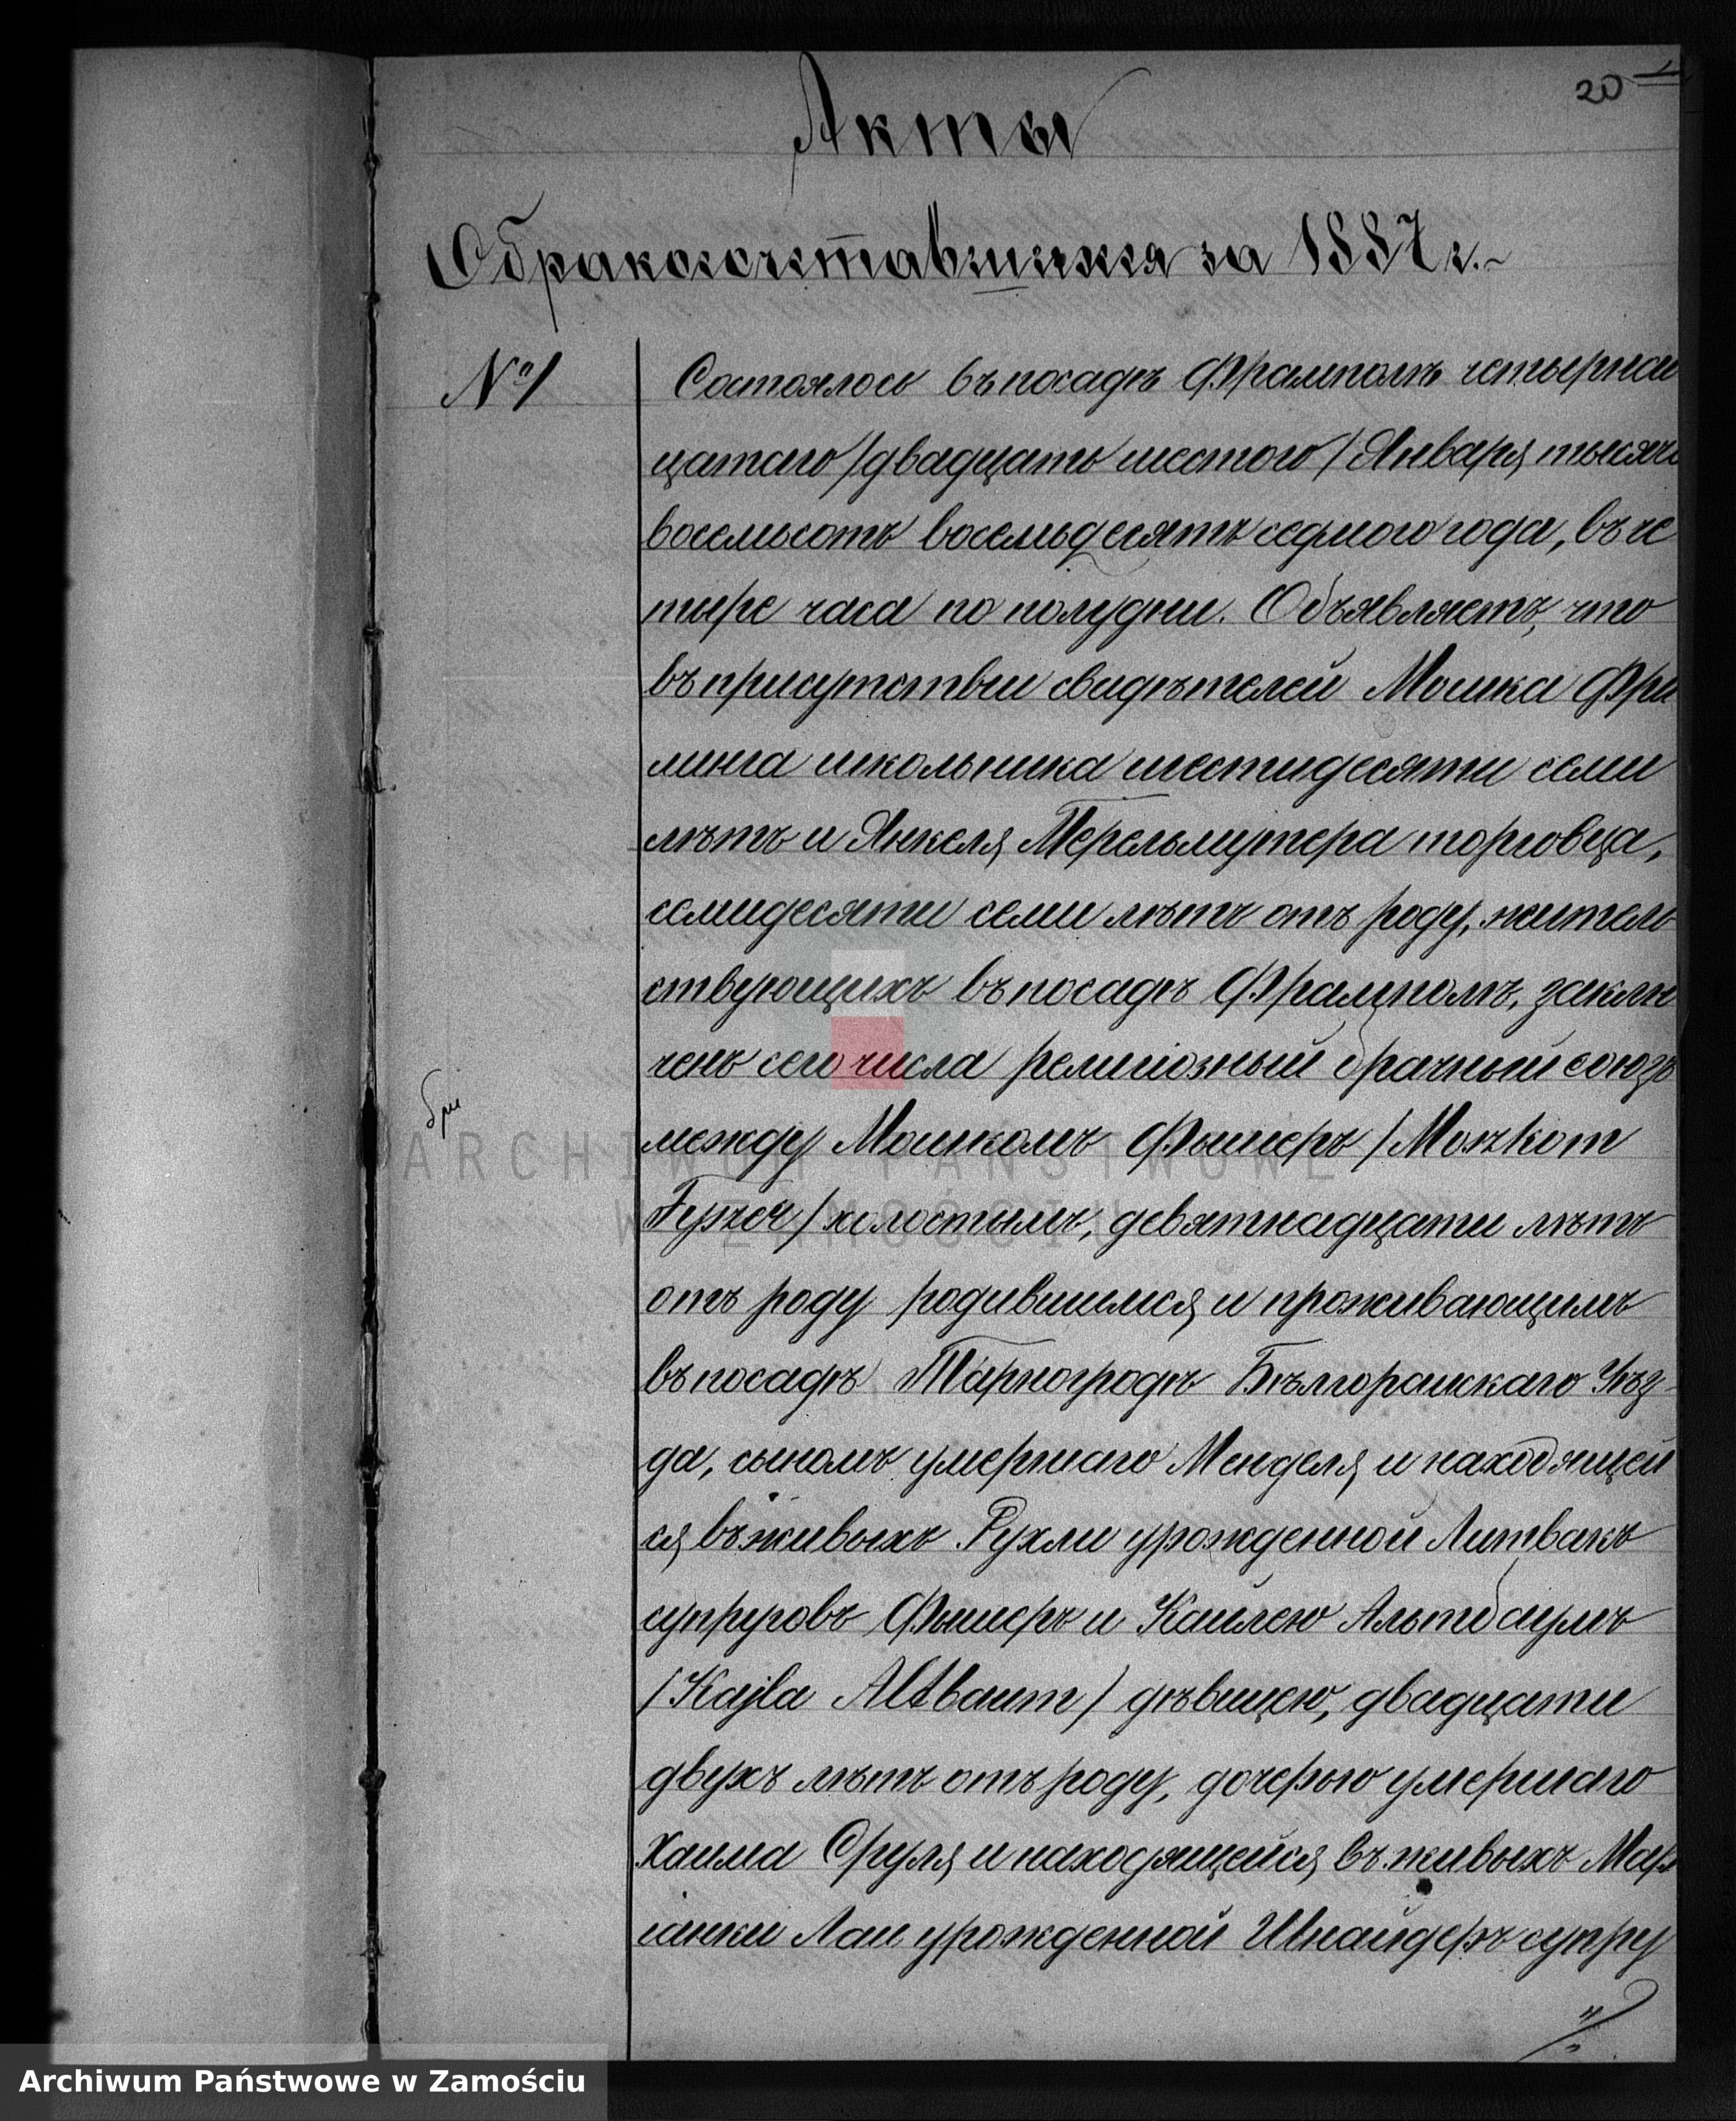 20
Акты
О бракосочетавшихся за 1887 г.
№ 1
Состоялось въ посадѣ Фрамполь четырнад
цатаго /двадцать шестого/ Января тысяча
восемьсотъ восемьдесятъ седмого года, въ че
тыре часа по полудни. Объявляетъ, что
въ присутствіи свидѣтелей Мошка Фри
линга школьника шестидесяти семи
лѣтъ и Янкеля Перельмутера торговца,
семидесяти семи лѣтъ отъ роду, житель
ствующихъ въ посадѣ Фрамполь, заклю
ченъ сего числа религіозный брачный союзъ
между Мошкомъ Фышеръ /Moszkom
Fyszer/ холостымъ, девятнадцати лѣтъ
отъ роду родившимся и проживающимъ
въ посадѣ Тарногродѣ Бѣлгорайскаго Уѣз-
да, сыномъ умершаго Менделя и находящей
ся въ живыхъ Рухли урожденной Литвакъ
супруговъ Фышеръ и Кайлею Альтбаумъ
/Kajla Altbaum/ дѣвицею, двадцати
двухъ лѣтъ отъ роду, дочерью умершаго
Хаима Сруля и находящейся въ живыхъ Мар
іанки Лаи урожденной Шнайдеръ супру
ARCHIWUM PAŃSTWOWE
W ZAMOŚCIU
Archiwum Państwowe w Zamościu